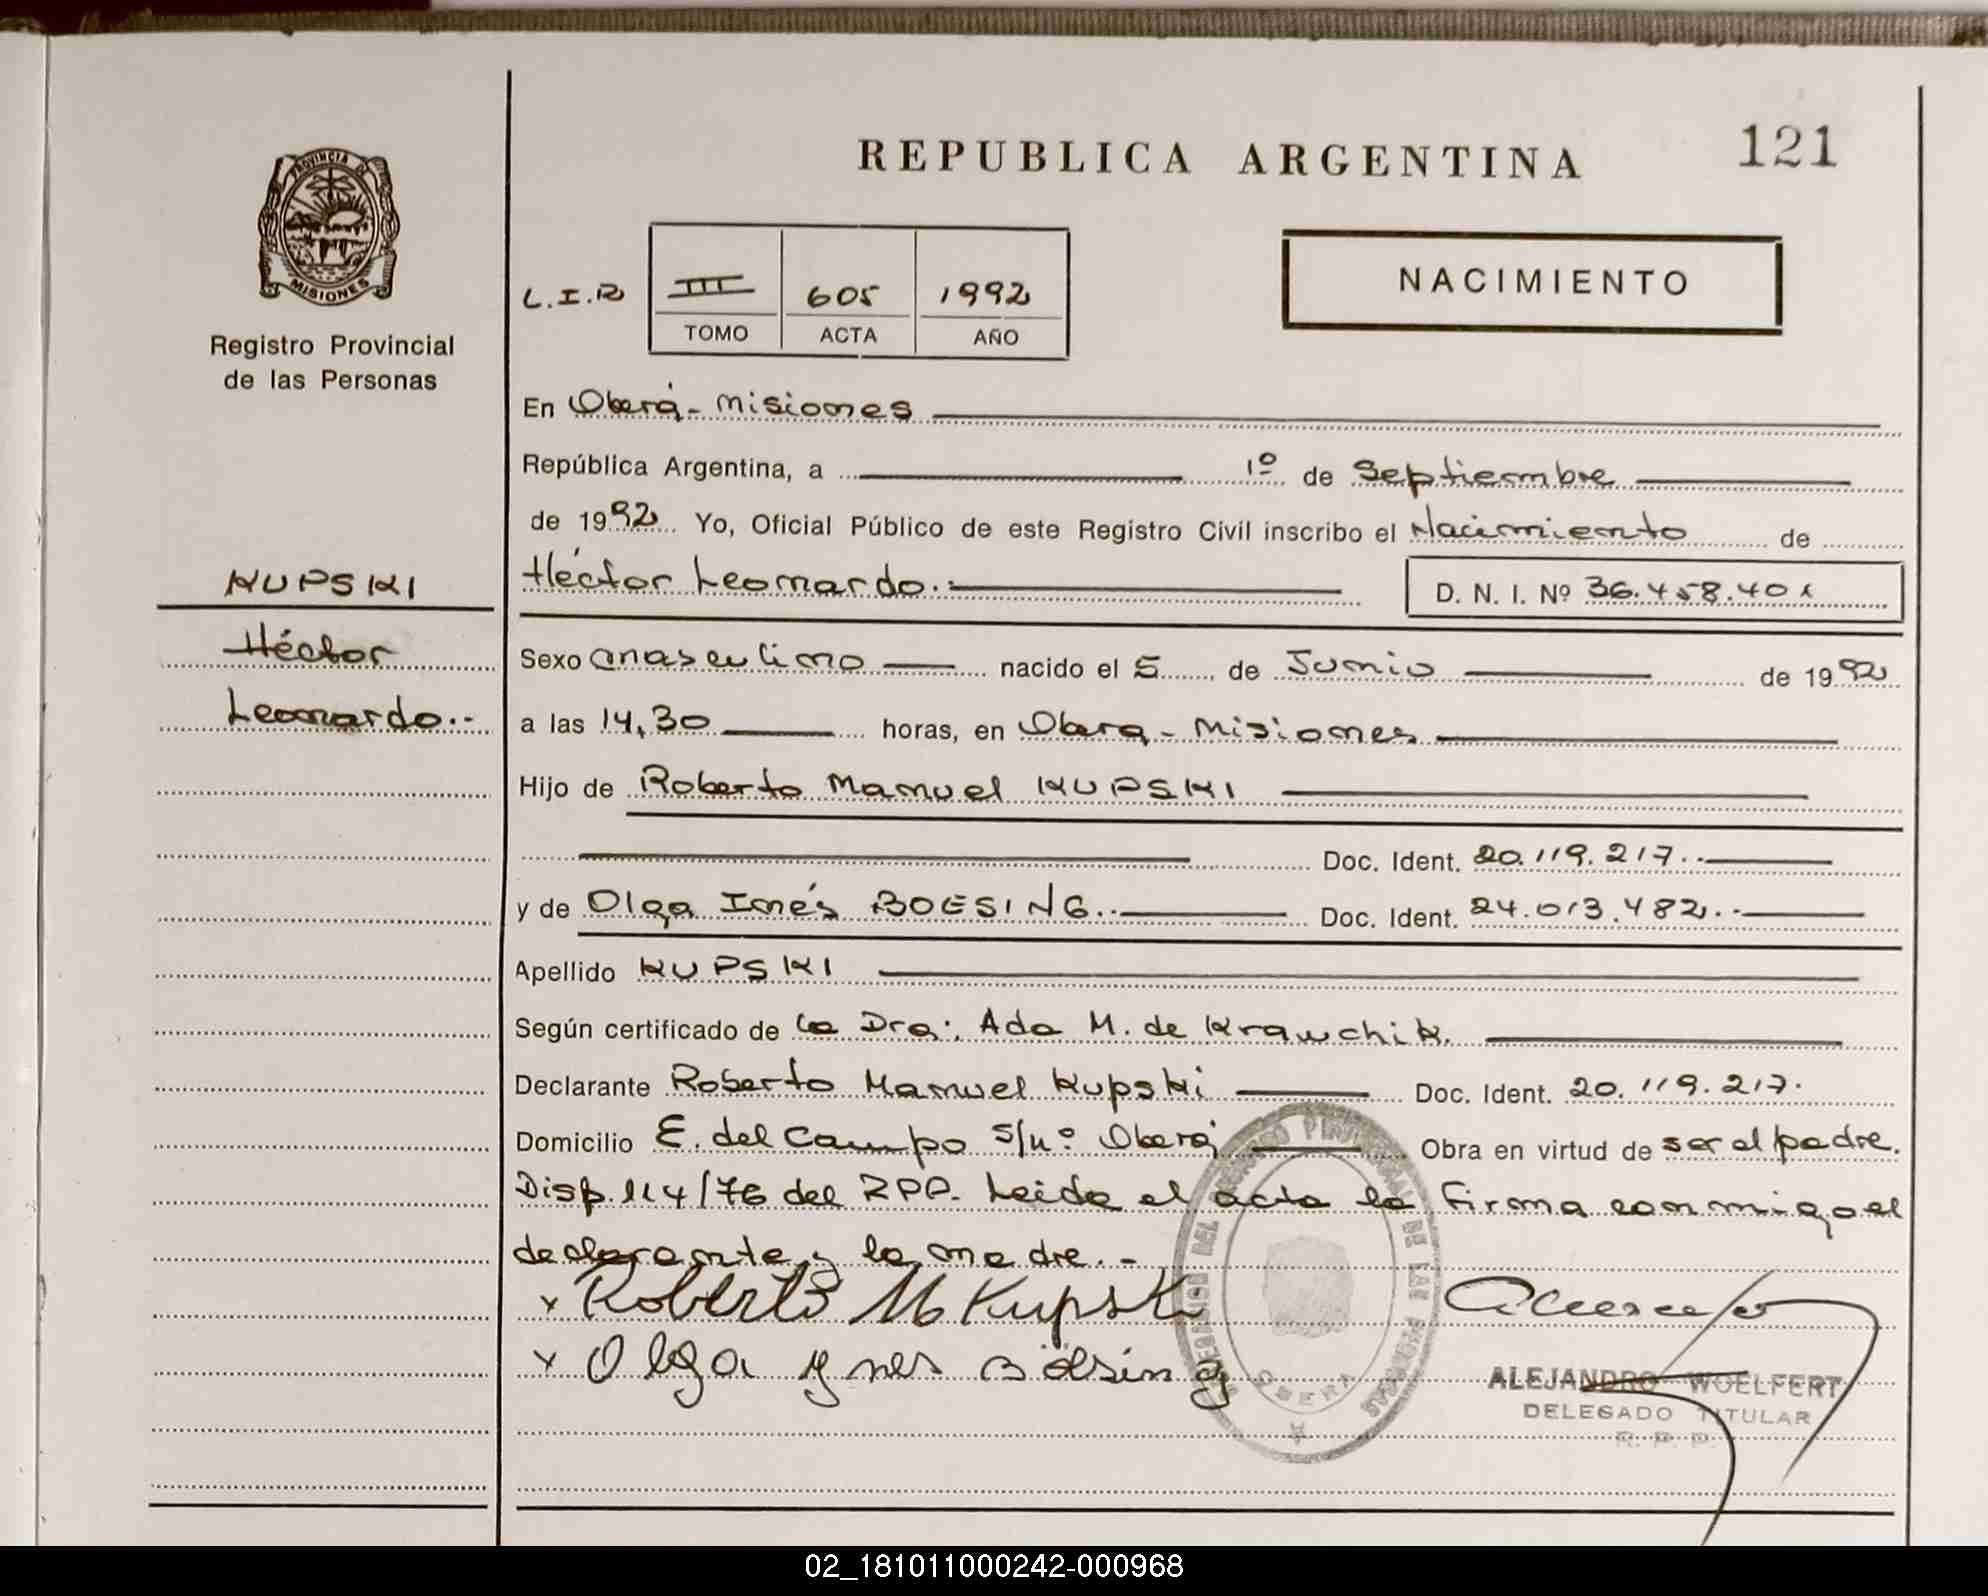 REPUBLICA ARGENTINA
121
PROVINCIA DE
MISIONES
Registro Provincial
de las Personas
L.I.R
III 605 1992
TOMO ACTA AÑO
NACIMIENTO
En Oberá - Misiones
República Argentina, a 1º de Septiembre
de 1992 Yo, Oficial Público de este Registro Civil inscribo el Nacimiento de
Héctor Leonardo.- D. N. I. Nº 36.458.401
KUPSKI
Héctor
Leonardo.-
Sexo masculino nacido el 5 de Junio de 1992
a las 14,30 horas, en Oberá - Misiones
Hijo de Roberto Manuel KUPSKI
Doc. Ident. 20.119.217.-
y de Olga Inés BOESING.- Doc. Ident. 24.013.482.-
Apellido KUPSKI
Según certificado de la Dra: Ada M. de Krawchik.
Declarante Roberto Manuel Kupski Doc. Ident. 20.119.217.
Domicilio E. del Campo s/nº Oberá Obra en virtud de ser el padre.
Disp. 114/76 del RPP. Leida el acta la firma conmigo el
declarante y la madre.-
x Roberto M Kupski
x Olga ynes Böesing
DELEGACION DEL REGISTRO PROVINCIAL DE LAS PERSONAS
OBERA
ALEJANDRO WOELFERT
DELEGADO TITULAR
R. P. P.
02_181011000242-000968